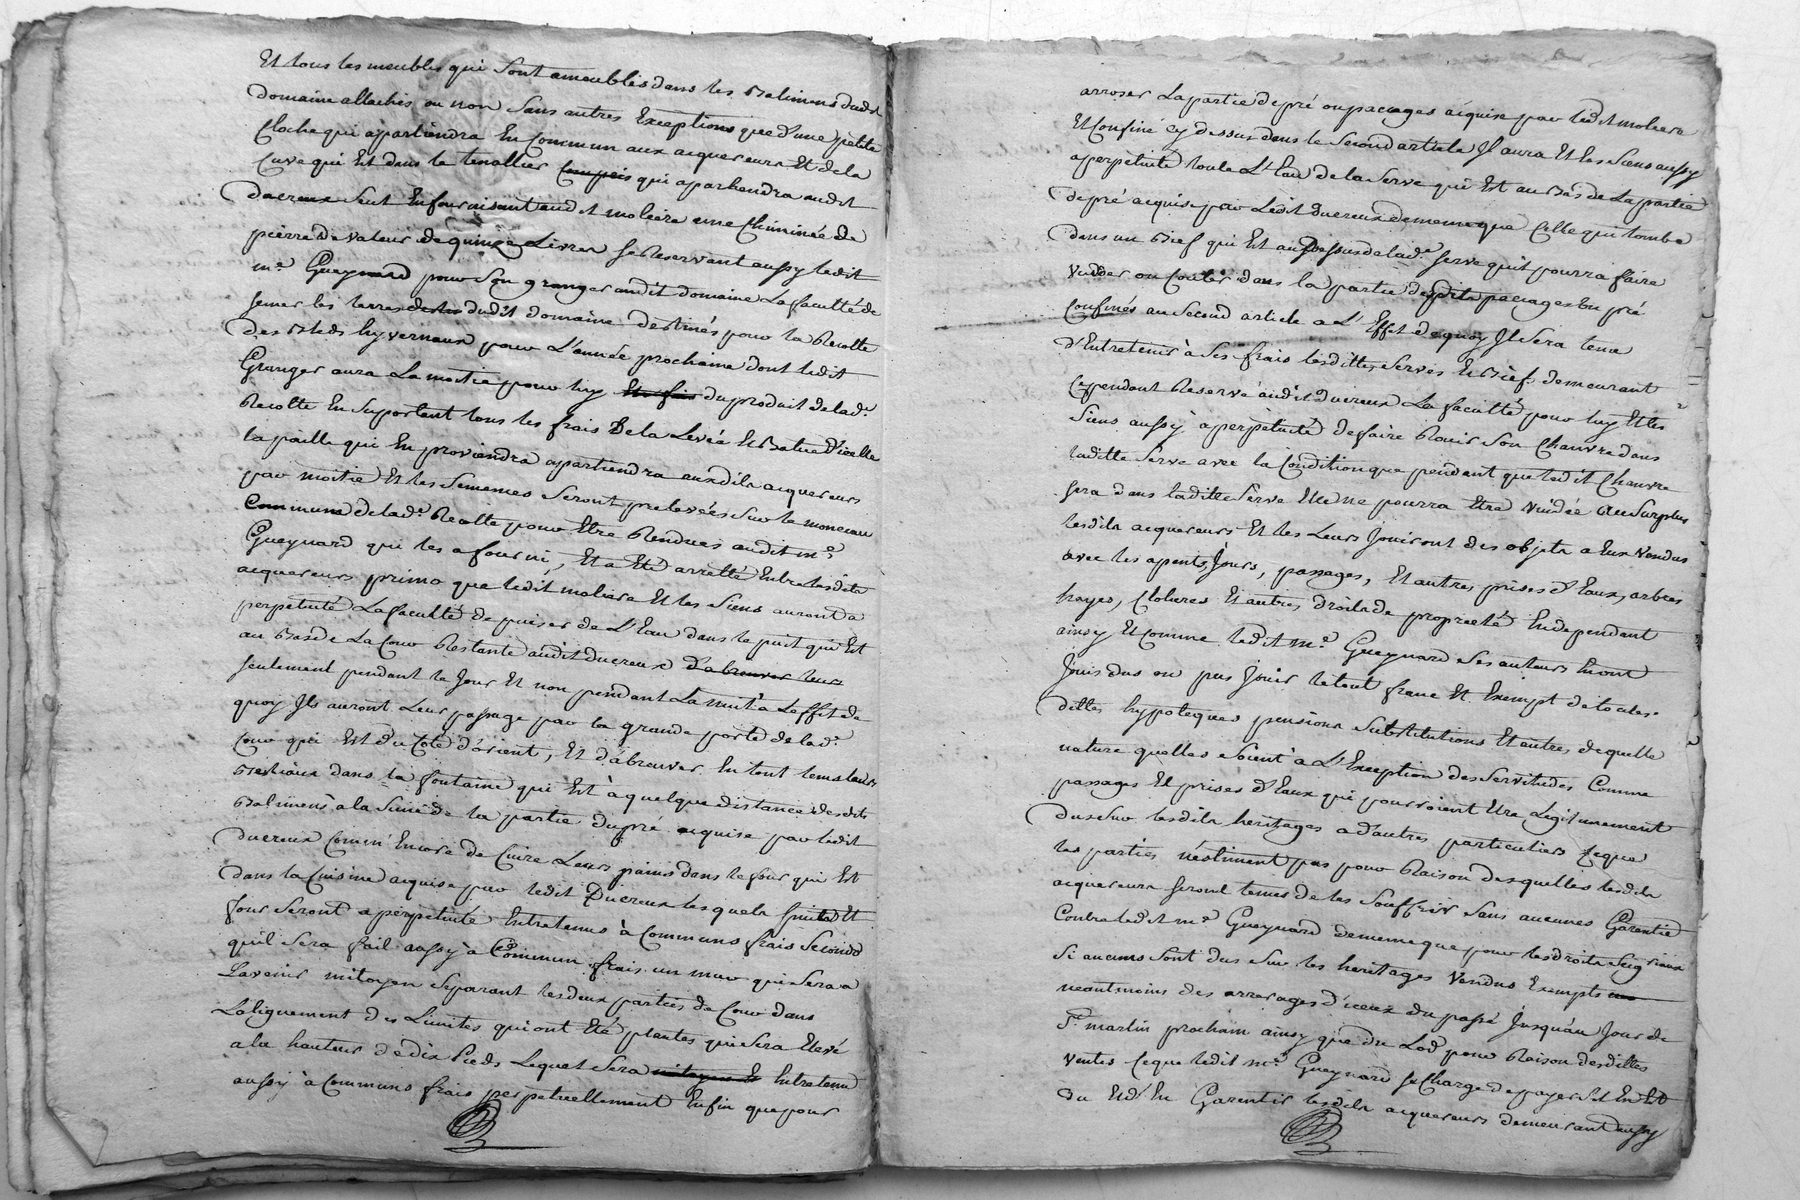 Et tous les meubles qui sont ameublés dans les Batimens dudit
domaine attachés ou non sans autres Exceptions que d'une petite
Cloche qui apartiendra En Commun aux acquereurs Et de la
Cuve qui Est dans le tenallier qui apartiendra audit
ducreux seul Enfournisant audit moliere une Chiminée de
pierre de valeur de quinze Livres se Reservant aussy ledit
me. Gueynard pour son granger audit domaine La faculté de
semer les terres dudit domaine destinés pour la Recolte
des Bleds hyvernaux pour L'année prochaine dont ledit
Granger aura La moitié pour luy du produit de lade.
Recolte En suportant tous les frais de la Levée Et Batue d'icelle
la paille qui En proviendra apartiendra auxdits acquereurs
par moitie Et les semences seront prelevées sur le monceau
Commune de lade. Recolte pour Etre Rendues audit me.
Gueynard qui les a fourni, Et a Eté arretté Entre lesdits
acquereurs primo que ledit moliere Et les siens auront a
perpetuité La faculté de puiser de L'Eau dans le puit qui Est
au Bas de La Cour Restante audit ducreux d'abreuver leurs
seulement pendant le Jour Et non pendant La nuit à Leffet de
quoy Ils auront Leur passage par la grande porte de lade.
Cour qui Est du Coté d'orient, Et d'abreuver En tout tems leurs
Bestiaux dans la fontaine qui Est à quelque distance desdits
Batimens à la Sime de la partie du pré acquise par ledit
ducreux Comm' Encore de Cuire Leurs pains dans le four qui Est
dans la Cuisine acquise par ledit Ducreux lesquels puits Et
four seront a perpetuité Entretenus à Communs frais Secondo
quil sera fait aussy à Commun frais un mur qui sera a
Lavenir mitoyen separant les deux parties de Cour dans
Lalignement des Limites qui ont Eté plantes qui sera Elevé
a la hauteur de dix Pieds Lequel sera mitoyen Et Entretenu
aussy à Communs frais perpetuellement Enfin que pour
arroser La partie de pré ou pacages acquise par ledit moliere
Et Confiné cy dessus dans le Second article Il aura Et les siens aussy
a perpetuité toute L'Eau de la Serve qui Est au Bas de La partie
de pré acquise par Ledit ducreux demême que Celle qui tombe
dans un Bief qui Est au dessus de lade. serve quil pourra faire
vuider ou Couler dans la partie desdits pacages ou pré
Confinés au Second article a L'Effet dequoy Il sera tenu
d'Entretenir à ses frais lesdittes Serves Et Bief. demeurant
Cependant Reservé audit ducreux La faculté pour luy Et les
siens aussy à perpetuité de faire Rouir son Chanvre dans
laditte Serve avec la Condition que pendant que ledit Chanvre
sera dans laditte Serve Elle ne pourra Etre vuidée Au Surplus
lesdits acquereurs Et les Leurs Jouiront des objets a Eux vendus
avec les apents, Jours, passages, Et autres prises d'Eaux, arbres
hayes, Clotures Et autres droits de proprieté Independant
ainsy Et Comme ledit me. Gueynard ses auteurs Enont
Jouis dus ou pus Jouir le tout franc Et Exempt de toutes
dettes hypoteques pensions Substitutions Et autres dequelle
nature quelles soient à L'Exception des Servitudes Comme
passages Et prises d'Eaux qui pourroient Etre Legitimement
dues sur lesdits heritages a d'autres particuliers Ceque
les parties n'estiment pas pour Raison desquelles lesdits
acquereurs seront tenus de les souffrir sans aucunes Garentie
Contre ledit me. Gueynard demême que pour les droits seigriaux
si aucuns sont dus sur les heritages vendus Exempts
neantmoins des arrerages d'iceux du passé Jusqu'au Jour de
St. martin prochain ainsy que du Lod pour Raison desdittes
ventes Ceque ledit me. Gueynard se Charge de payer
du Et d'En Garentir lesdits acquereurs demeurant aussy